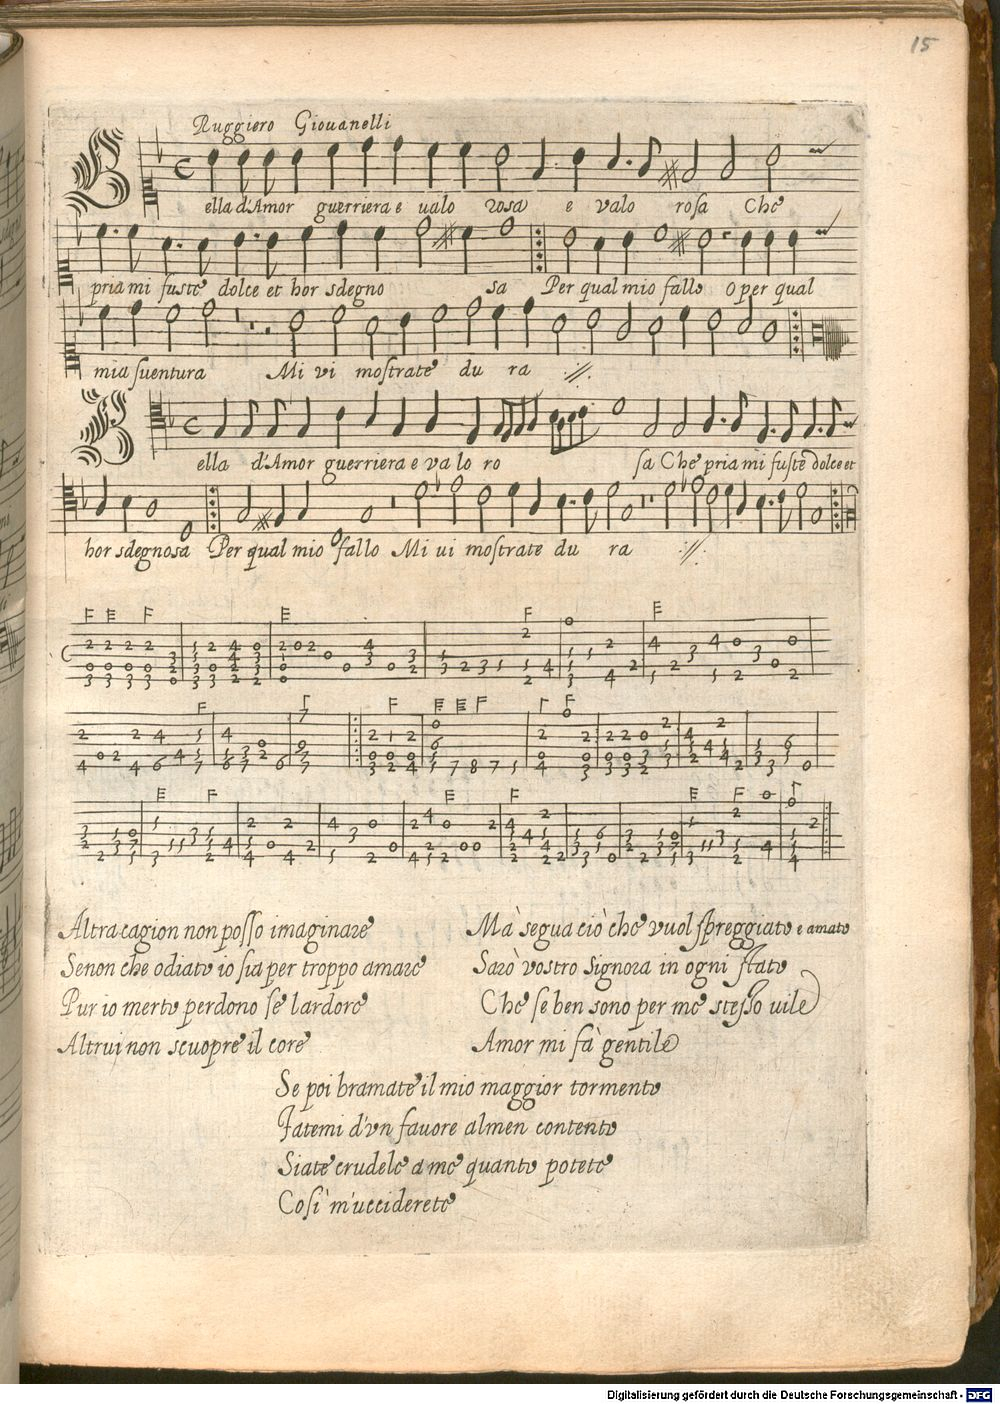 15
Ruggiero Giouanelli
Bella d'Amor guerriera e ualo rosa e valo rosa Che
pria mi fuste dolce et hor sdegno sa Per qual mio fallo o per qual
mia suentura Mi vi mostrate du ra ://:
Bella d'Amor guerriera e va lo ro sa Che pria mi fuste dolce et
hor sdegnosa Per qual mio fallo Mi ui mostrate du ra ://:
Altra cagion non posso imaginare
Senon che odiato io sia per troppo amare
Pur io merto perdono se l'ardore
Altrui non scuopre il core
Ma segua ciò che vuol spreggiato e amato
Sarò vostro Signora in ogni stato
Che se ben sono per me stesso uile
Amor mi fà gentile
Se poi bramate il mio maggior tormento
Fatemi d'un fauore almen contento
Siate crudele a me quanto potete
Così m'ucciderete
Digitalisierung gefördert durch die Deutsche Forschungsgemeinschaft - DFG